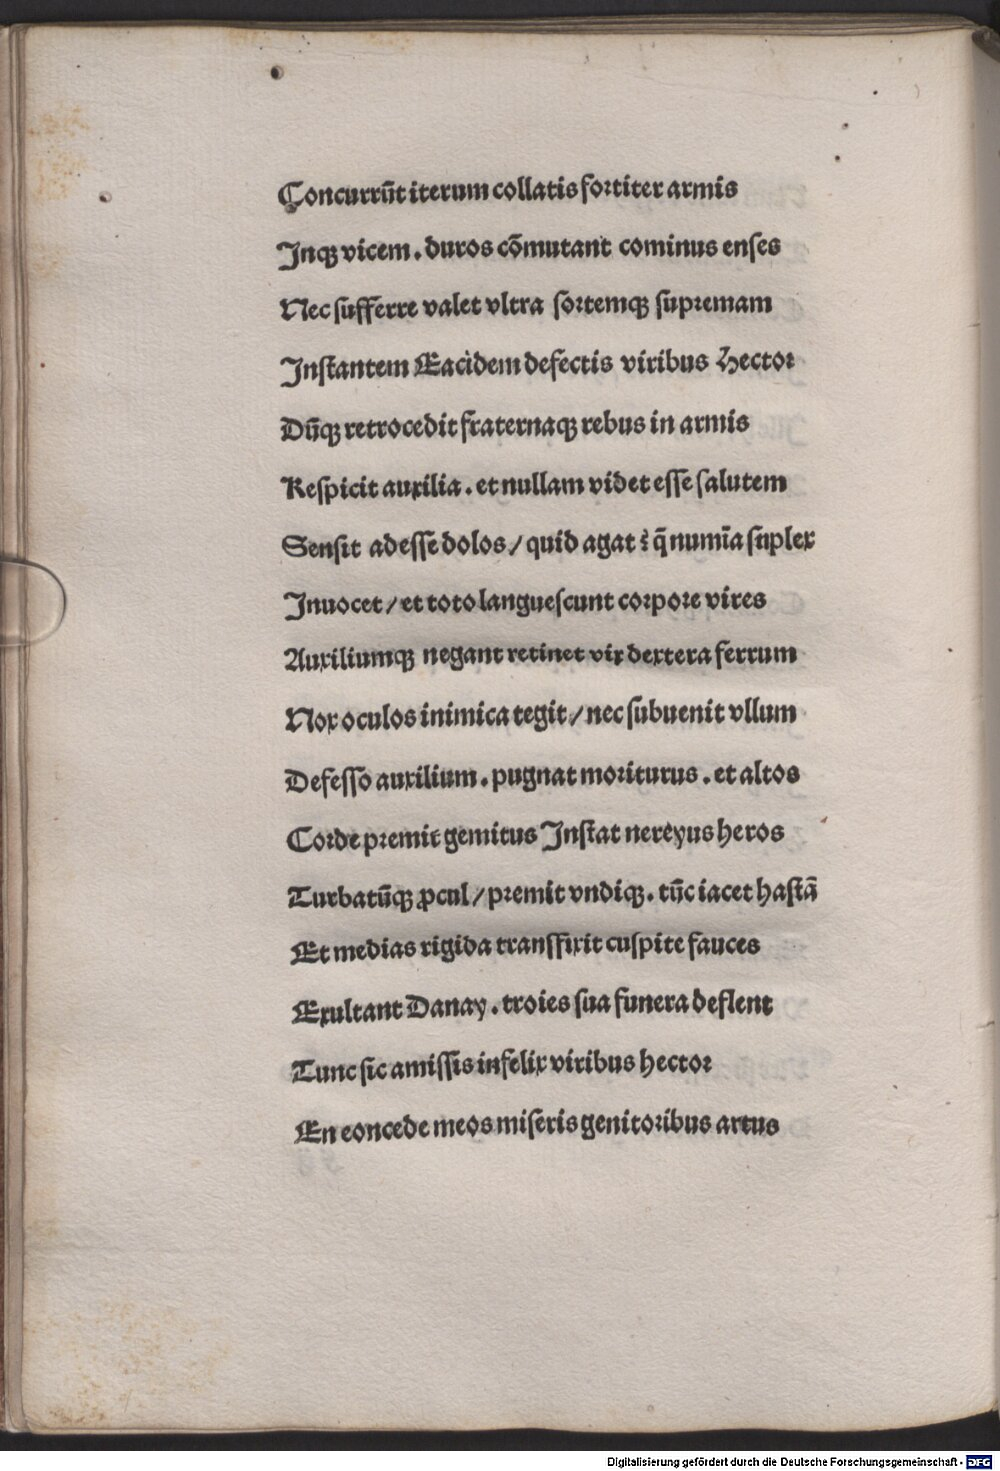 Concurrūt iterum collatis fortiter armis
Inqꝫ vicem . duros cōmutant cominus enses
Nec sufferre valet vltra sortemqꝫ supremam
Instantem Eacidem defectis viribus Hector
Dūqꝫ retrocedit fraternaqꝫ rebus in armis
Respicit auxilia . et nullam videt esse salutem
Sensit adesse dolos / quid agat ⁊ q̄ numīa suplex
Inuocet / et toto languescunt corpore vires
Auxiliumqꝫ negant retinet vix dextera ferrum
Nox oculos inimica tegit / nec subuenit vllum
Defesso auxilium . pugnat moriturus . et altos
Corde premit gemitus Instat nereyus heros
Turbatūqꝫ ꝓcul / premit vndiqꝫ . tūc iacet hastā
Et medias rigida transfixit cuspite fauces
Exultant Danay . troies sua funera deflent
Tunc sic amissis infelix viribus hector
En eoncede meos miseris genitoribus artus
Digitalisierung gefördert durch die Deutsche Forschungsgemeinschaft - DFG